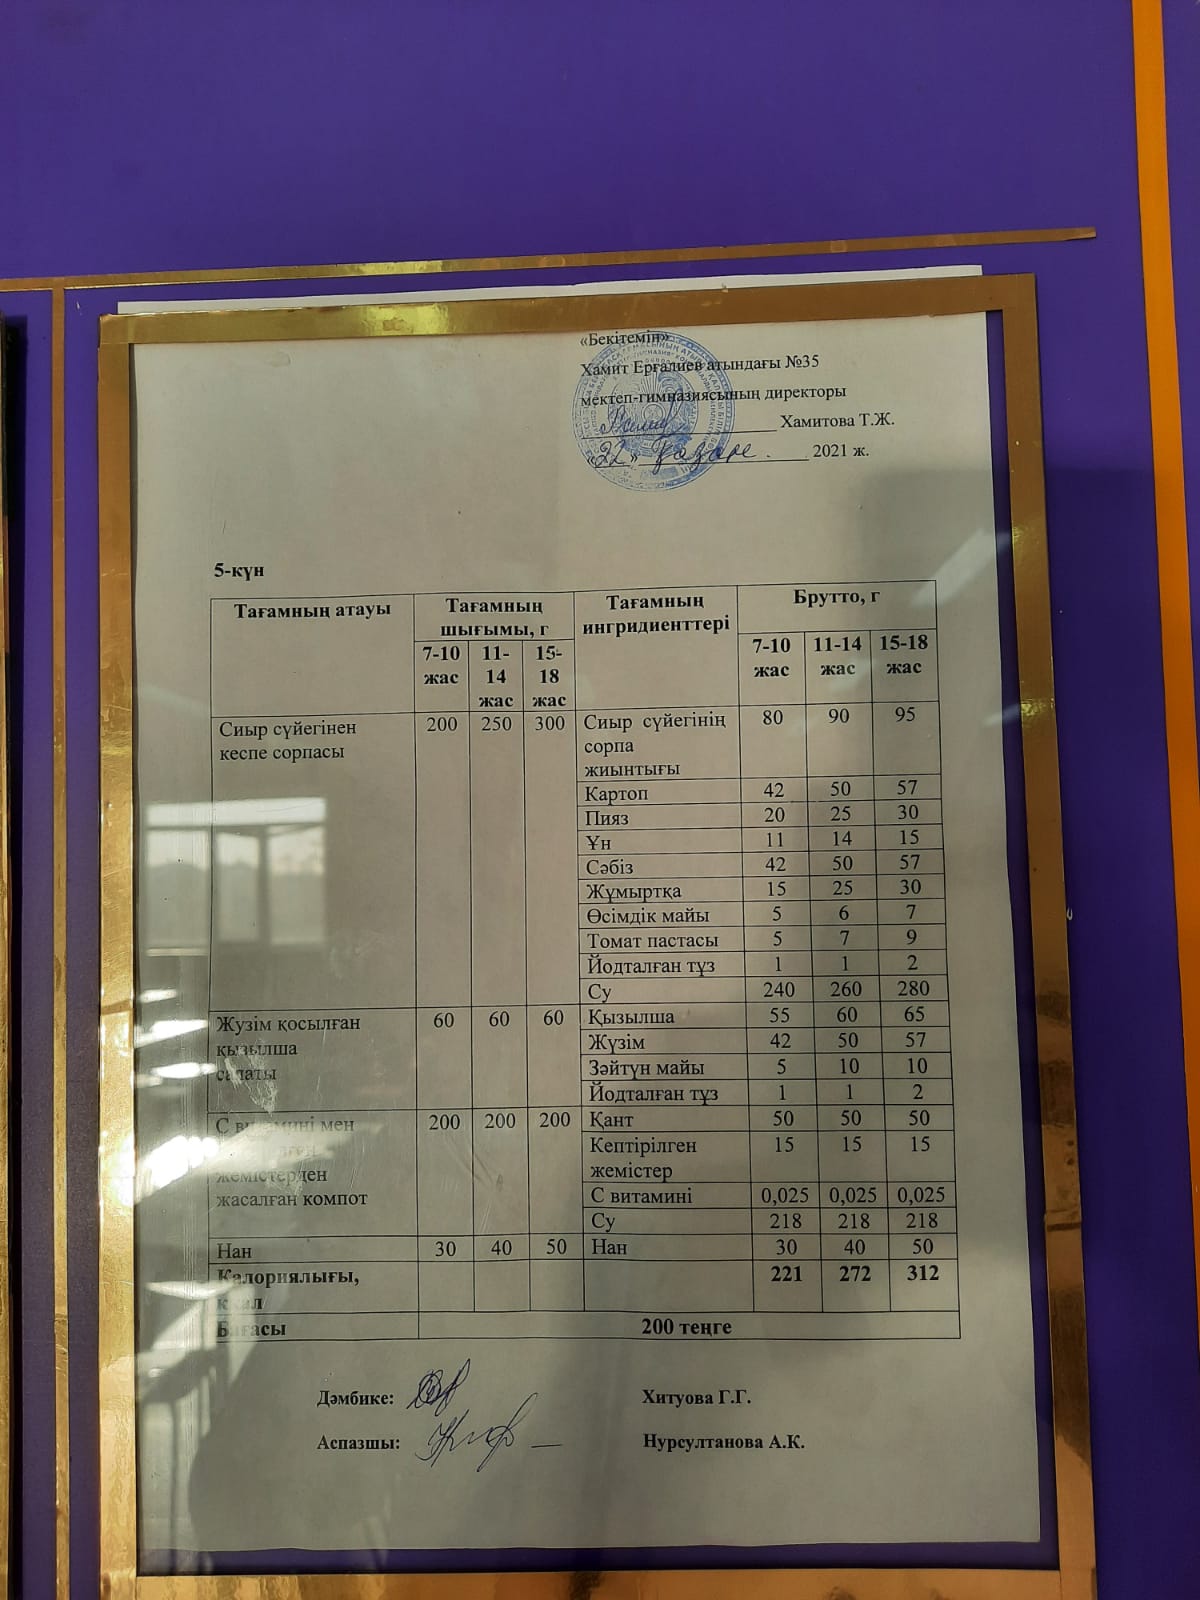 «Бекітемін»
Хамит Ерғалиев атындағы №35
мектеп-гимназиясының директоры
Хамитова Т.Ж.
«22» қазан 2021 ж.
5-күн
Тағамның атауы Тағамның шығымы, г Тағамның ингридиенттері Брутто, г
7-10 жас 11-14 жас 15-18 жас 7-10 жас 11-14 жас 15-18 жас
Сиыр сүйегінен кеспе сорпасы 200 250 300 Сиыр сүйегінің сорпа жиынтығы 80 90 95
Картоп 42 50 57
Пияз 20 25 30
Ұн 11 14 15
Сәбіз 42 50 57
Жұмыртқа 15 25 30
Өсімдік майы 5 6 7
Томат пастасы 5 7 9
Йодталған тұз 1 1 2
Су 240 260 280
Жузім қосылған қызылша салаты 60 60 60 Қызылша 55 60 65
Жүзім 42 50 57
Зәйтүн майы 5 10 10
Йодталған тұз 1 1 2
С витамині мен жемістерден жасалған компот 200 200 200 Қант 50 50 50
Кептірілген жемістер 15 15 15
С витамині 0,025 0,025 0,025
Су 218 218 218
Нан 30 40 50 Нан 30 40 50
Калориялығы, ккал 221 272 312
Бағасы 200 теңге
Дәмбике: Хитуова Г.Г.
Аспазшы: Нурсултанова А.К.